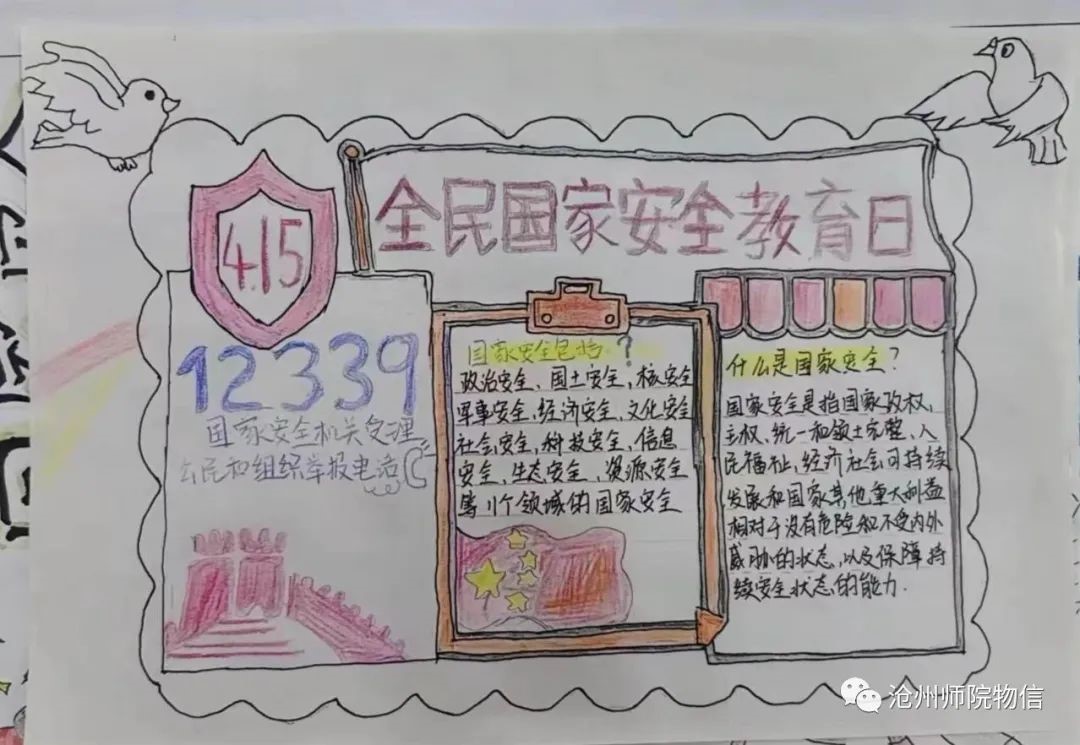 4.15
全民国家安全教育日
12339
国家安全机关受理
公民和组织举报电话
国家安全包括?
政治安全、国土安全、核安全
军事安全,经济安全、文化安全
社会安全,科技安全、信息
安全,生态安全、资源安全
等11个领域的国家安全
什么是国家安全?
国家安全是指国家政权,
主权、统一和领土完整、人
民福祉,经济社会可持续
发展和国家其他重大利益
相对于没有危险和不受内外
威胁的状态,以及保障持
续安全状态的能力.
沧州师院物信